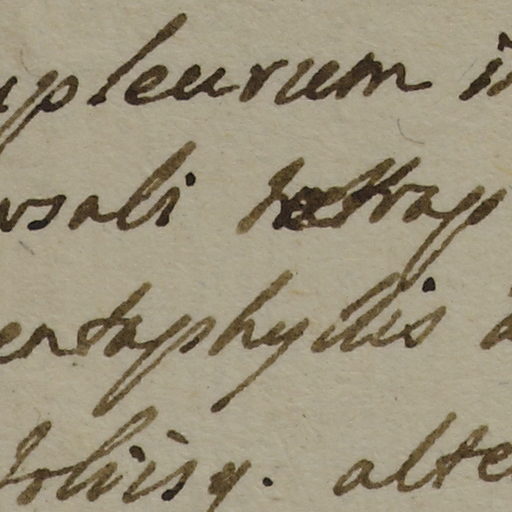 upleurum i
rsali tetrap
entaphyllis a
foliisq. alte